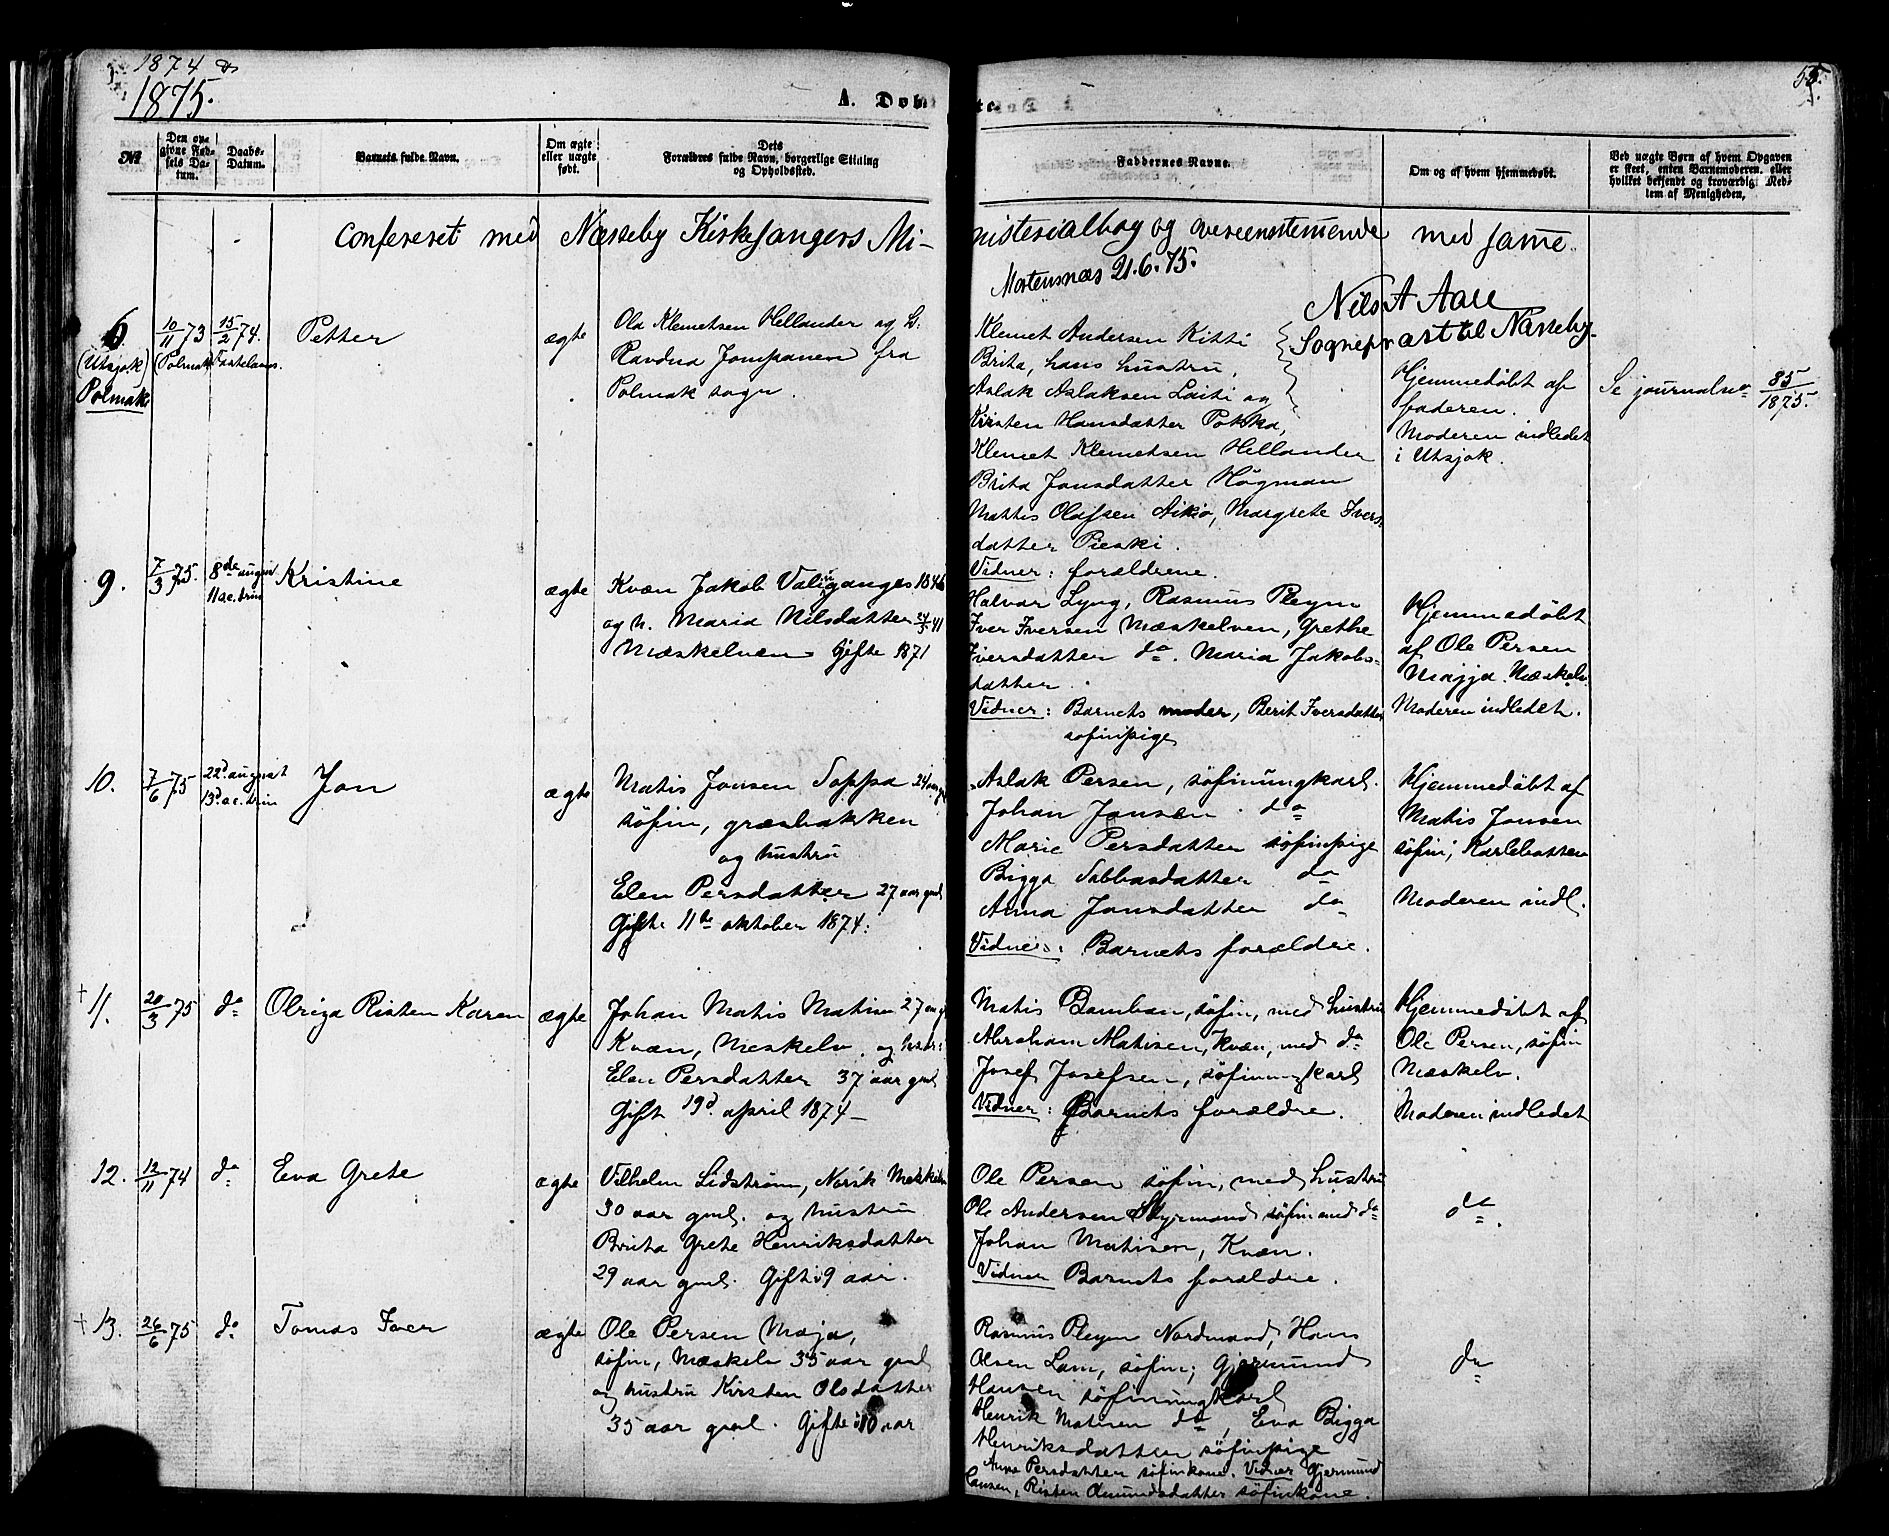 1874 &
1875.
A. Døb
te
55.
№
Den op-
givne Fød-
sels Da-
tum.
Daabs-
Datum.
Barnets fulde Navn.
Om ægte
eller uægte
født.
Dets
Forældres fulde Navn, borgerlige Stilling
og Opholdssted.
Faddernes Navne.
Om og af hvem hjemmedøbt.
Ved uægte Børn af hvem Opgaven
er skeet, enten Barnemoderen, eller
hvilket bekjendt og troværdig Med-
lem af Menigheden.
Confereret med Næsseby Kirkesangers Mi-
nisterialbog og overeensstemmende med samme.
Mortensnæs 21.6.75.
Nils A Aall
Sogneprest til Næsseby.
6.
(Utsjok)
Polmak
10/11 73
(Polmak
15/2 74.
Fastelavns.
Petter
ægte
Ola Klemetsen Hellander og h.
Ravdna Jompanen fra
Polmak sogn.
Klemet Andersen Kitti
Brita, hans hustru,
Aslak Aslaksen Laiti og
Kirsten Hansdatter Pokka,
Klemet Klemetsen Hellander
Brita Jonsdatter Högman
Mattis Olafsen Aikio, Margrete Ivers-
datter Pieski.
Vidner: forældrene.
Hjemmedøbt af
faderen.
Moderen indledet
i Utsjok.
Se journalno 85/1875.
9.
7/3 75.
8de august
11 s.e. trin
Kristine
ægte
Kvæn Jakob Valiganges 1846
og h. Maria Nilsdatter 24/3 41
Mæskelven Gifte 1871
Halvar Lyng, Rasmus Pleym
Iver Iversen Mæskelven, Grethe
Iversdatter do. Maria Jakobs-
datter.
Vidner: Barnets moder, Berit Iversdatter
søfinpige
Hjemmedøbt
af Ole Persen
Majja Mæskelv.
Moderen indledet.
10.
7/6 75
22d august
13d s.e. trin
Jon
ægte
Matis Jonsen Soppa 24 aar gl
søfin, græsbakken
og hustru
Elen Persdatter 27 aar gml
Gifte 11te oktober 1874.
Aslak Persen, søfinungkarl.
Johan Jonsen do
Marie Persdatter søfinpige
Bigga Sabbasdatter do
Anna Jonsdatter do
Vidner: Barnets forældre.
Hjemmedøbt af
Matis Jonsen
søfin, Karlebotten
Moderen indl.
† 11.
20/3 75
do
Olriga Risten Karen
ægte
Johan Matis Matisen 27 aar g
Kvæn, Meskelv, og hstr:
Elen Persdatter 37 aar gml
Gift 19d april 1874 –
Matis Bomban, søfin, med hustru
Abraham Matisen, Kvæn, med do
Josef Josefsen, søfinungkarl
Vidner: Barnets forældre.
Hjemmedøbt af
Ole Persen, søfin
Mæskelv.
Moderen indledet
12.
12/11 74
do
Eva Grete
ægte
Vilhelm Lidstrøm, Norsk Meskelv
30 aar gml. og hustru
Brita Grete Henriksdatter
29 aar gml. Gift i 9 aar.
Ole Persen søfin, med hustru
Ole Andersen Styrmand søfin med do
Johan Matisen, Kvæn.
Vidner Barnets forældre.
do.
† 13.
26/6 75
do
Tomas Iver
ægte
Ole Persen Maja,
søfin, Mæskelv 35 aar gml
og hustru Kirsten Olsdatter
35 aar gml. Gifte i 10 aar
Rasmus Pleym Nordmand, Hans
Olsen Lam, søfin; Gjermund
Hansen søfinungkarl
Henrik Matisen do, Eva Bigga
Henriksdatter søfinpige
Anna Persdatter søfinkone. Vidner Gjermund
Hansen, Risten Amundsdatter søfinkone.
do